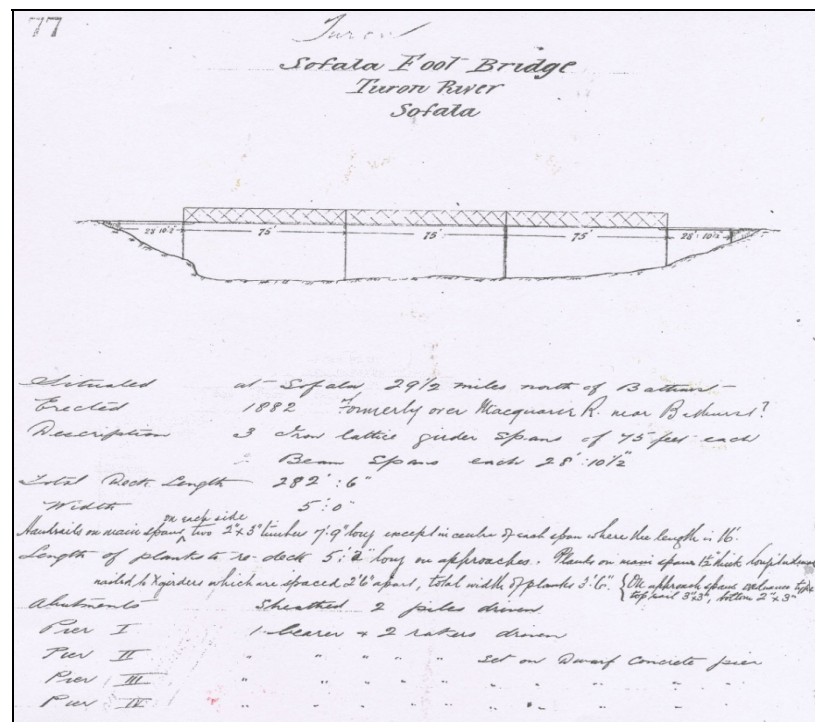 77
Turon
Sofala Foot Bridge
Turon River
Sofala
28' 10½" 75' 75' 75' 28' 10½"
Situated at Sofala 29½ miles north of Bathurst
Erected 1882 Formerly over Macquarie R. near Bathurst?
Description 3 Iron lattice girder spans of 75 feet each
2 Beam Spans each 28': 10½"
Total Deck Length 282': 6"
Width 5': 0"
on each side
Handrails on main spans two 2" x 3" timbers 7'.9" long except in centre of each span where the length is 16'.
Length of planks to re-deck 5': 2" long on approaches. Planks on main spans 1½" thick longitudinal
nailed to X girders which are spaced 2'6" apart, total width of planks 3'.6". { On approach spans ordinance type
top rail 3"x3", bottom 2"x3"
Abutments Sheathed 2 piles driven
Pier I 1 bearer + 2 rakers driven
Pier II " " " " " set on Dwarf Concrete pier
Pier III " " " " " " " " " "
Pier IV " " " " " " " " " "